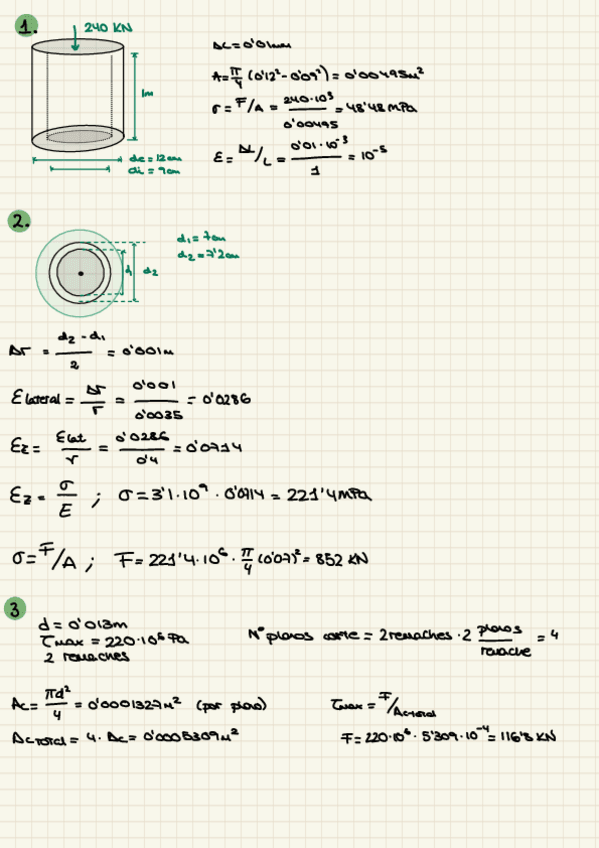 1.
240 KN
1m
de = 12cm
di = 9cm
ΔL = 0'01mm
A = π/4 (0'12² - 0'09²) = 0'00495m²
σ = F/A = 240·10³ / 0'00495 = 48'48 MPa
ε = ΔL/L = 0'01·10⁻³ / 1 = 10⁻⁵
2.
d₁ d₂
d₁ = 7cm
d₂ = 7'2cm
Δr = d₂ - d₁ / 2 = 0'001m
ε lateral = Δr / r = 0'001 / 0'0035 = 0'0286
εz = εlat / r = 0'0286 / 0'4 = 0'0714
εz = σ / E ; σ = 3'1·10⁹ · 0'0714 = 221'4 MPa
σ = F/A ; F = 221'4·10⁶ · π/4 (0'07)² = 852 KN
3
d = 0'013m
τmax = 220·10⁶ Pa
2 remaches
Nº planos corte = 2 remaches · 2 planos / remache = 4
Ac = πd² / 4 = 0'0001327m² (por plano)
Ac total = 4 · Ac = 0'0005309m²
τmax = F/Ac total
F = 220·10⁶ · 5'309·10⁻⁴ = 116'8 KN